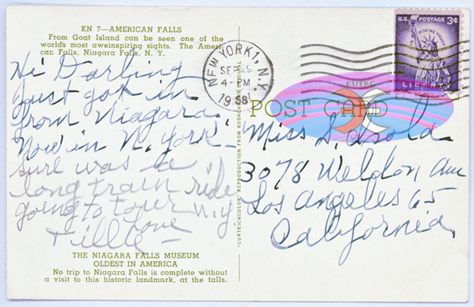 KN 7—AMERICAN FALLS
From Goat Island can be seen one of the
world's most aweinspiring sights. The Ameri-
can Falls, Niagara Falls, N. Y.
Hi Darling
Just got in
from Niagara
Now in N. York.
sure was a
long train ride
going to tour N.Y
Love
Tillie
THE NIAGARA FALLS MUSEUM
OLDEST IN AMERICA
No trip to Niagara Falls is complete without
a visit to this historic landmark, at the falls.
NEW YORK 1, N.Y.
SEP
4-PM
1958
U.S. POSTAGE 3¢
LIBERTY
POST CARD
Miss
3078 Weldon Ave
Los Angeles 65
California